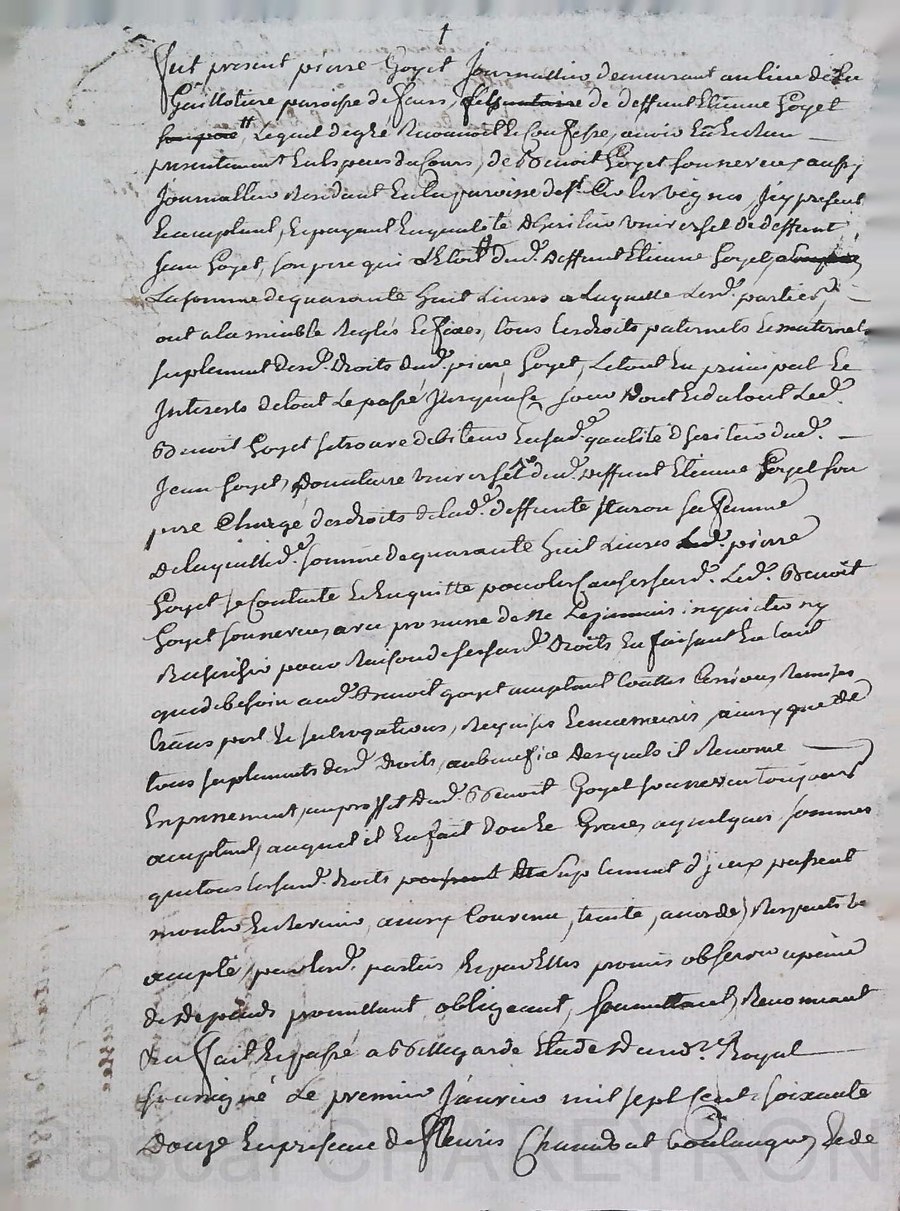 fut present pierre Goyet Journallier demeurant au lieu de la
Guillotiere paroisse de feurs, de deffunt Etienne Goyet
Lequel de gré Reconnoit et Confesse, avoir Eu et Receu
presentement En Especes du Cours, de Benoit Goyet son neveu aussy
Journallier Residant En la paroisse de St. Cyr les vignes, Icy present
Et acceptant, Et payant En qualité d'heritier universel de deffunt
Jean Goyet, son pere qui L'Etoit dud. deffunt Etienne Goyet,
La somme de quarante huit Livres a laquelle Lesd. parties
ont a la miable Reglés Et fixés, tous les droits paternels Et maternels
suplement desd. droits dud. pierre Goyet, Le tout En principal Et
Interests de tout Le passé Jusqu'a Ce Jour dont Et du tout Led.
Benoit Goyet se trouve debiteur En sad. qualité d'heritier dud.
Jean Goyet, donataire universel dud. deffunt Etienne Goyet son
pere Chargé des droits de lad. deffunte sa femme
de laquelle d. somme de quarante huit Livres Led. pierre
Goyet se Contente Et En quitte pour les Causes susd. Led. Benoit
Goyet son neveu avec promesse de ne Le jamais inquieter ny
Rechercher pour Raison de ses susd. droits En faisant En tant
que de besoin aud. Benoit goyet acceptant touttes Cessions Remises
trans port Et subrogations, Requises Et necessaires, ainsy que de
tous suplements desd. droits, au benefice desquels il Renonce
Expressement, au proffit dud. Benoit Goyet son neveu toujours
acceptant, auquel il En fait don Et Graces, a quelques sommes
que tous les susd. droits suplement d'jceux puissent
monter Et Revenir, ainsy Convenu, traité, accordé, Respectivement
accepté par lesd. parties Et par Elles promis observer a peine
de depends promettant, obligeant, soumettant, Renonceant
fait Et passé a Bellegarde Etude du nore. Royal
soussigné Le premier Janvier mil sept Cent soixante
douze En presence de fleuris Chambat boulanger, Et de
Pascal CHAREYRON